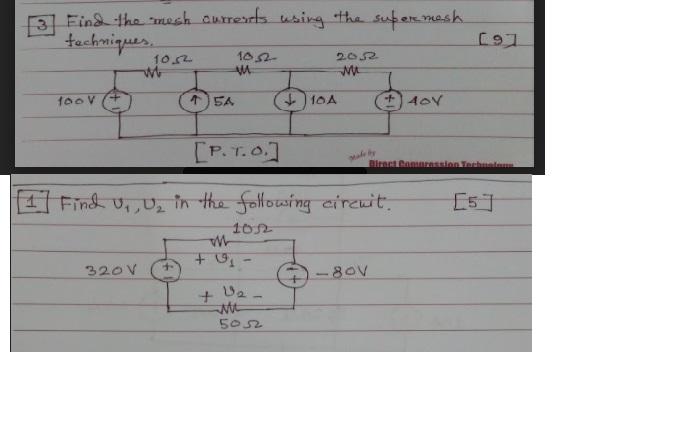 [3] Find the mesh currents using the supermesh
techniques. [9]
10Ω 10Ω 20Ω
100V + - ↑ 5A ↓ 10A + - 40V
[P.T.O.]
Made by
Direct Compression Technology
[1] Find v₁, v₂ in the following circuit. [5]
10Ω
+ v₁ -
320V + - - + -80V
+ v₂ -
50Ω